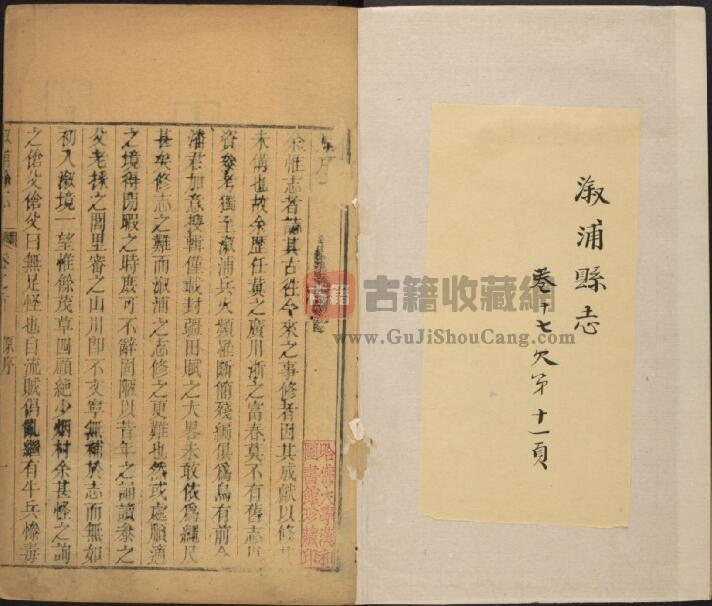 溆浦縣志
卷十七欠第十一頁
古籍
古籍收藏網
www.GuJiShouCang.com
原序
余惟志者誌其古往今來之事修者因其成獻以修其
未備也故余歷任冀之廣川浙之富春莫不有舊志
資參考獨至溆浦兵火頻罹斷簡殘編俱爲烏有前令
潘君加意搜輯僅載封疆田賦之大畧未敢依爲繩尺
甚矣修志之難而溆浦之志修之更難也然或處順適
之境得閒暇之時庶可不辭固陋以昔年之誦讀叅之
父老採之閭里審之山川卽不文寧無補於志而無如
初入溆境一望惟餘茂草四顧絶少烟村余甚怪之詢
之傖父傖父曰無足怪也自流賊倡亂繼有牛兵慘毒
溆浦縣志
卷之首
原序
哈佛大學漢和
圖書館珍藏印